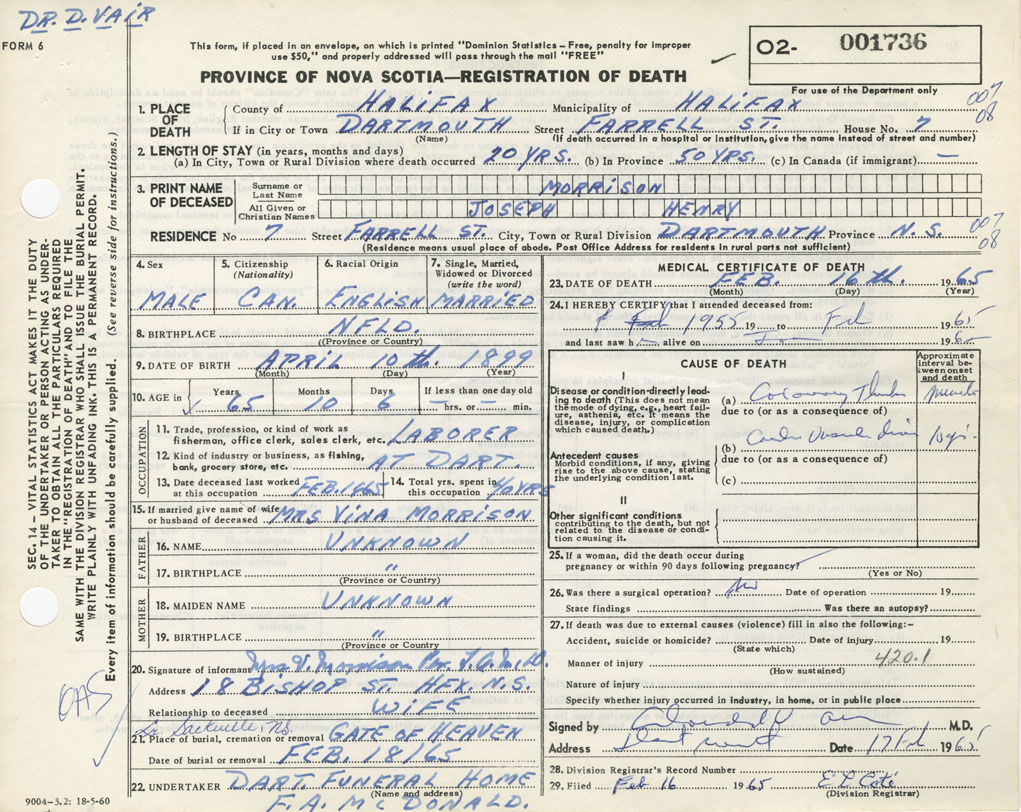 DR. D. VAIR
FORM 6
This form, if placed in an envelope, on which is printed "Dominion Statistics – Free, penalty for improper
use $50," and properly addressed will pass through the mail "FREE"
O2- 001736
For use of the Department only
PROVINCE OF NOVA SCOTIA—REGISTRATION OF DEATH
007
08
1. PLACE OF DEATH
County of HALIFAX Municipality of HALIFAX
If in City or Town DARTMOUTH Street FARRELL ST. House No. 7
(Name) (If death occurred in a hospital or institution, give the name instead of street and number)
2. LENGTH OF STAY (in years, months and days)
(a) In City, Town or Rural Division where death occurred 20 YRS. (b) In Province 50 YRS. (c) In Canada (if immigrant) —
3. PRINT NAME OF DECEASED
Surname or Last Name MORRISON
All Given or Christian Names JOSEPH HENRY
RESIDENCE No 7 Street FARRELL ST. City, Town or Rural Division DARTMOUTH Province N.S.
007
08
(Residence means usual place of abode. Post Office Address for residents in rural parts not sufficient)
4. Sex
MALE
5. Citizenship (Nationality)
CAN.
6. Racial Origin
ENGLISH
7. Single, Married, Widowed or Divorced (write the word)
MARRIED
8. BIRTHPLACE NFLD.
(Province or Country)
9. DATE OF BIRTH APRIL 10th. 1899
(Month) (Day) (Year)
10. AGE in
Years Months Days If less than one day old
65 10 6 — hrs. or — min.
OCCUPATION
11. Trade, profession, or kind of work as
fisherman, office clerk, sales clerk, etc. LABORER
12. Kind of industry or business, as fishing,
bank, grocery store, etc. AT DART
13. Date deceased last worked
at this occupation FEB. 1965
14. Total yrs. spent in
this occupation 40 YRS
15. If married give name of wife
or husband of deceased MRS VINA MORRISON
FATHER
16. NAME UNKNOWN
17. BIRTHPLACE "
(Province or Country)
MOTHER
18. MAIDEN NAME UNKNOWN
19. BIRTHPLACE "
(Province or Country)
20. Signature of informant Mrs V. Morrison Per
Address 18 BISHOP ST. HFX. N.S.
Relationship to deceased WIFE
Lr. Sackville, N.S.
21. Place of burial, cremation or removal GATE OF HEAVEN
Date of burial or removal FEB. 18/65
22. UNDERTAKER DART. FUNERAL HOME
(Name and address)
F.A. McDONALD.
MEDICAL CERTIFICATE OF DEATH
23. DATE OF DEATH FEB. 16th. 1965
(Month) (Day) (Year)
24. I HEREBY CERTIFY that I attended deceased from:
1955 19 to Feb 1965
and last saw h alive on 19
CAUSE OF DEATH
Approximate interval between onset and death
I
Disease or condition directly leading to death (This does not mean
the mode of dying, e.g., heart failure, asthenia, etc. It means the
disease, injury, or complication
which caused death.)
(a) Coronary
due to (or as a consequence of)
Antecedent causes
Morbid conditions, if any, giving
rise to the above cause, stating
the underlying condition last.
(b)
due to (or as a consequence of)
(c)
II
Other significant conditions
contributing to the death, but not
related to the disease or condition causing it.
25. If a woman, did the death occur during
pregnancy or within 90 days following pregnancy?
(Yes or No)
26. Was there a surgical operation? No Date of operation 19
State findings Was there an autopsy?
27. If death was due to external causes (violence) fill in also the following:–
Accident, suicide or homicide? Date of injury 19
(State which)
Manner of injury 420.1
(How sustained)
Nature of injury
Specify whether injury occurred in industry, in home, or in public place
Signed by M.D.
Address Dartmouth Date 17 Feb 1965
28. Division Registrar's Record Number
29. Filed Feb 16 1965
(Division Registrar)
SEC. 14 – VITAL STATISTICS ACT MAKES IT THE DUTY
OF THE UNDERTAKER OR PERSON ACTING AS UNDERTAKER TO OBTAIN ALL THE PARTICULARS REQUIRED
IN THE "REGISTRATION OF DEATH" AND TO FILE THE
SAME WITH THE DIVISION REGISTRAR WHO SHALL ISSUE THE BURIAL PERMIT.
WRITE PLAINLY WITH UNFADING INK. THIS IS A PERMANENT RECORD.
Every item of information should be carefully supplied. (See reverse side for instructions.)
9004–3.2: 18-5-60